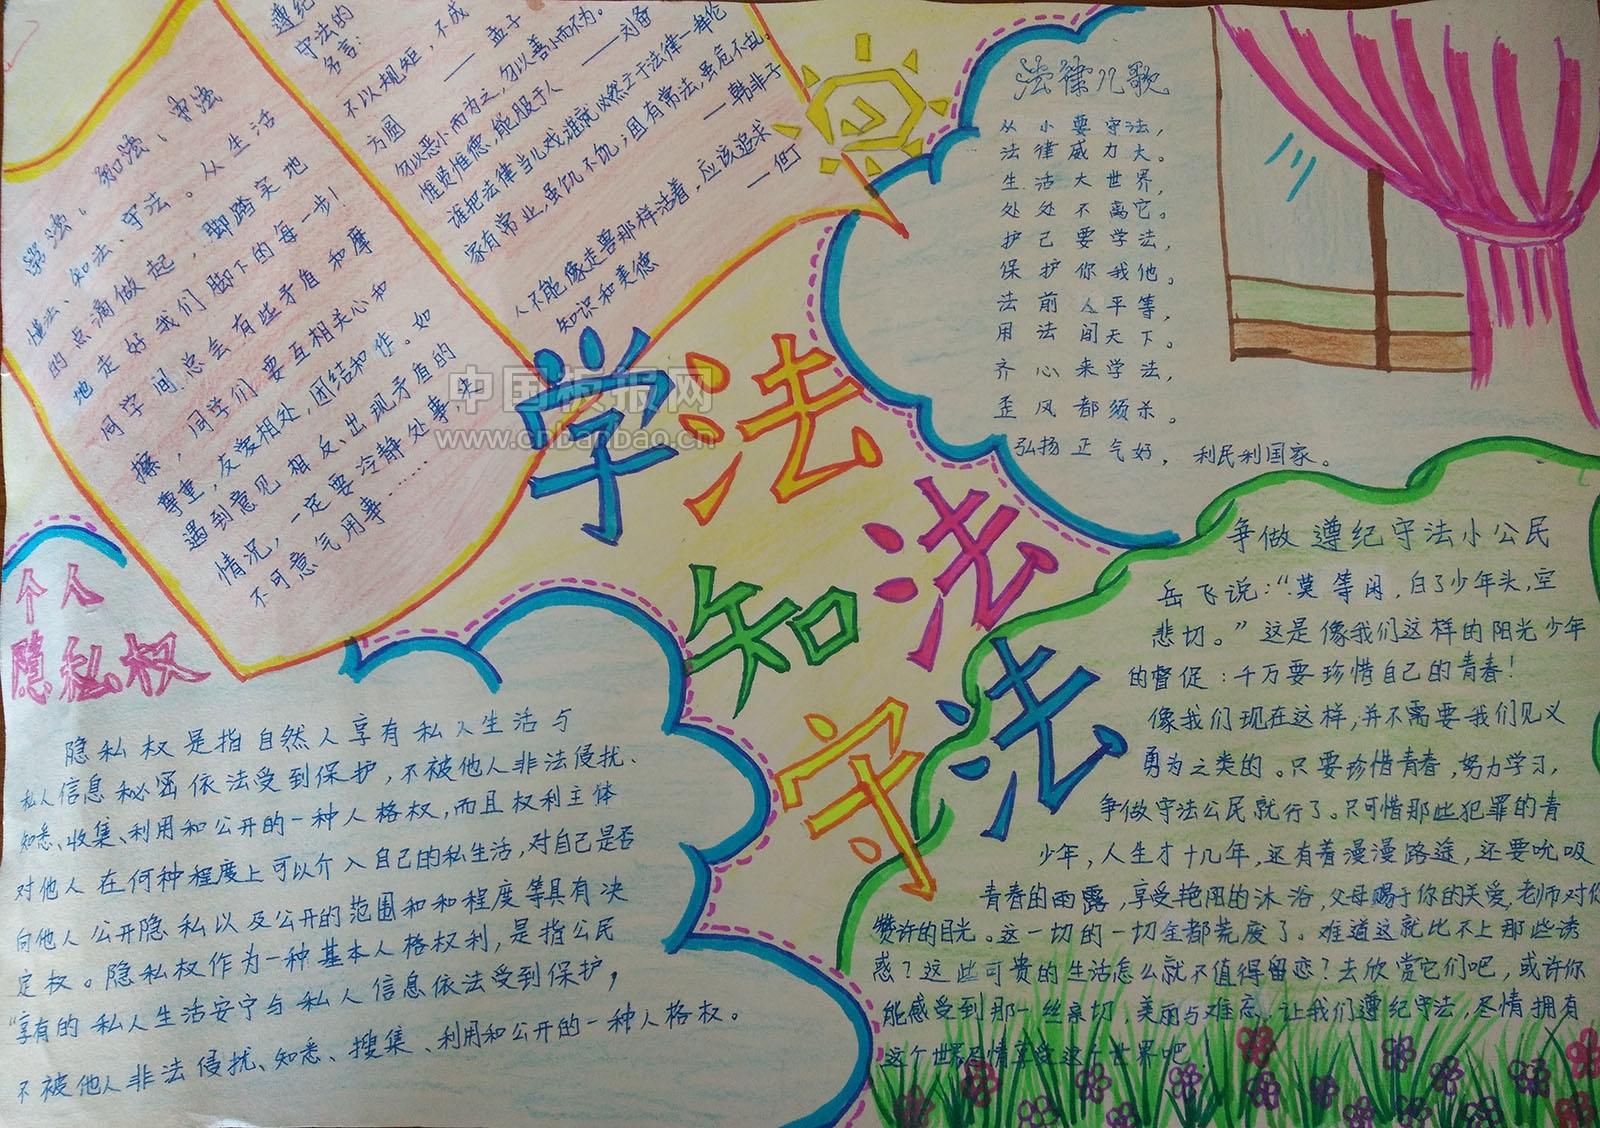 学法、知法、守法
懂法、知法、守法。从生活
的点滴做起，脚踏实地
地走好我们脚下的每一步！
同学间总会有些矛盾和摩
擦，同学们要互相关心和
尊重，友爱相处，团结和作。如
遇到意见相反、出现矛盾的
情况，一定要冷静处事，
不可意气用事……
遵纪
守法的
名言：
不以规矩，不成
方圆 ——孟子
勿以恶小而为之，勿以善小而不为。
惟贤惟德，能服于人 ——刘备
谁把法律当儿戏，谁就必然亡于法律——拜伦
家有常业，虽饥不饥；国有常法，虽危不乱。
——韩非子
人不能像走兽那样活着，应该追求
知识和美德 ——但丁
法律儿歌
从小要守法，
法律威力大。
生活大世界，
处处不离它。
护己要学法，
保护你我他。
法前人平等，
用法间天下。
齐心来学法，
歪风都须杀。
弘扬正气好，利民利国家。
学法
知法
守法
中国板报网
www.cnbanbao.cn
个人
隐私权
隐私权是指自然人享有私人生活与
私人信息秘密依法受到保护，不被他人非法侵扰、
知悉、收集、利用和公开的一种人格权，而且权利主体
对他人在何种程度上可以介入自己的私生活，对自己是否
向他人公开隐私以及公开的范围和和程度等具有决
定权。隐私权作为一种基本人格权利，是指公民
“享有的私人生活安宁与私人信息依法受到保护，
不被他人非法侵扰、知悉、搜集、利用和公开的一种人格权。
争做遵纪守法小公民
岳飞说：“莫等闲，白了少年头，空
悲切。”这是像我们这样的阳光少年
的督促：千万要珍惜自己的青春！
像我们现在这样，并不需要我们见义
勇为之类的。只要珍惜青春，努力学习，
争做守法公民就行了。只可惜那些犯罪的青
少年，人生才十几年，还有着漫漫路途，还要吮吸
青春的雨露，享受艳阳的沐浴，父母赐于你的关爱，老师对你
赞许的目光。这一切的一切全都荒废了。难道这就比不上那些诱
惑？这些可贵的生活怎么就不值得留恋？去欣赏它们吧，或许你
能感受到那一丝亲切，美丽与难忘。让我们遵纪守法，尽情拥有
这个世界，尽情享受这个世界吧！